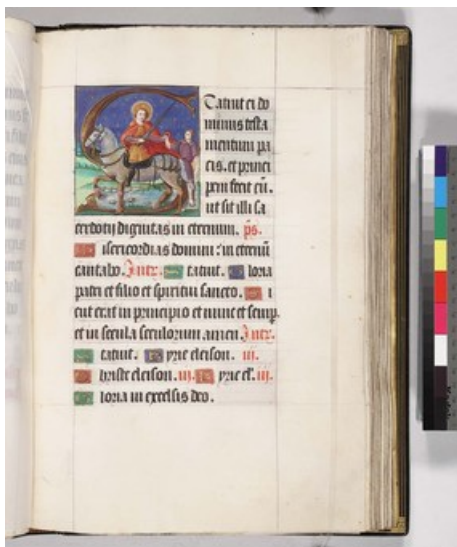 Statuit ei do
minus testa
mentum pa
cis. et princi
pem fecit eū.
ut sit illi sa
cerdotij dignitas in eternum. ps.
Misericordias domini : in eternū
cantabo. Intr. Statuit. Gloria
patri et filio et spiritui sancto. Si
cut erat in principio et nunc et semp.
et in secula seculorum amen. Intr.
Statuit. Kyrie eleison. iii.
Christe eleison. iii. Kyrie el. iii.
Gloria in excelsis deo.